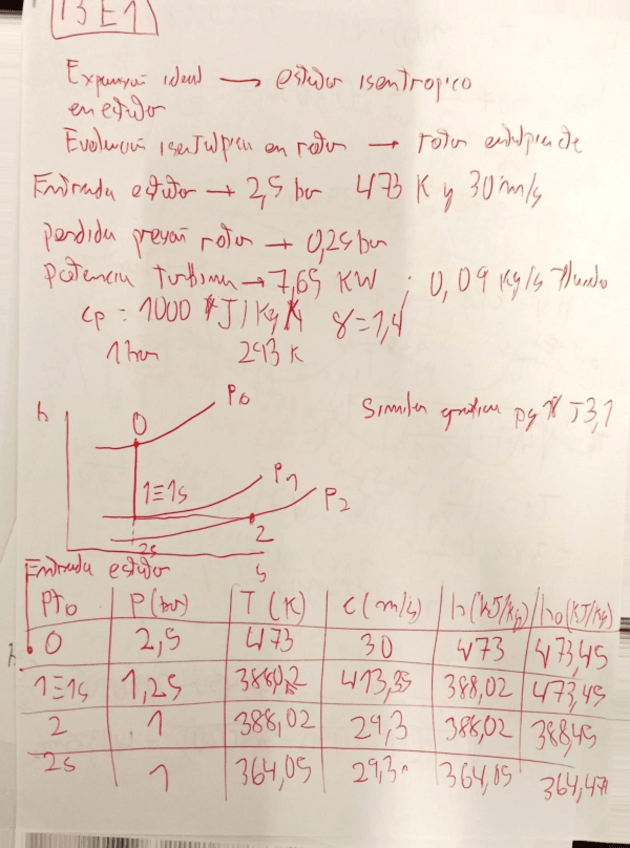 T3 E1
Expansión ideal → estator isentropico
en estator
Evolución isentálpica en rotor → rotor entalpia cte
Entrada estator → 2,5 bar 473 K y 30 m/s
perdida presión rotor → 0,25 bar
Potencia turbina → 7,65 KW ; 0,09 Kg/s fluido
cp = 1000 J/Kg K γ = 1,4
1 bar 293 K
h 0 P0 Similar grafica pg T3,1
1≡1s P1 P2
2
2s
s
Entrada estator
Pto P(bar) T(K) c(m/s) h(kJ/kg) ho(kJ/kg)
0 2,5 473 30 473 473,45
1≡1s 1,25 388,02 413,35 388,02 473,45
2 1 388,02 29,3 388,02 388,45
2s 1 364,05 29,3 364,05 364,47